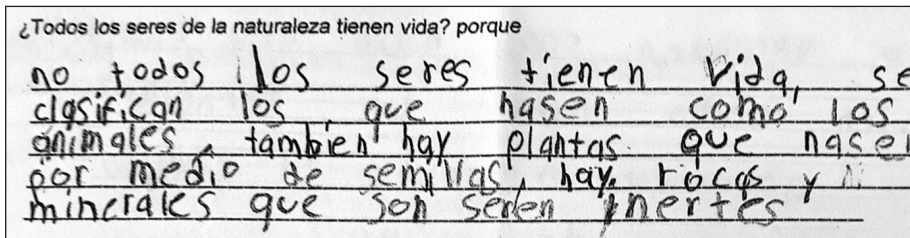 ¿Todos los seres de la naturaleza tienen vida? porque
no todos los seres tienen vida, se
clasifican los que nasen como los
animales, tambien hay plantas que nasen
por medio de semillas, hay rocas y
minerales que son seren inertes